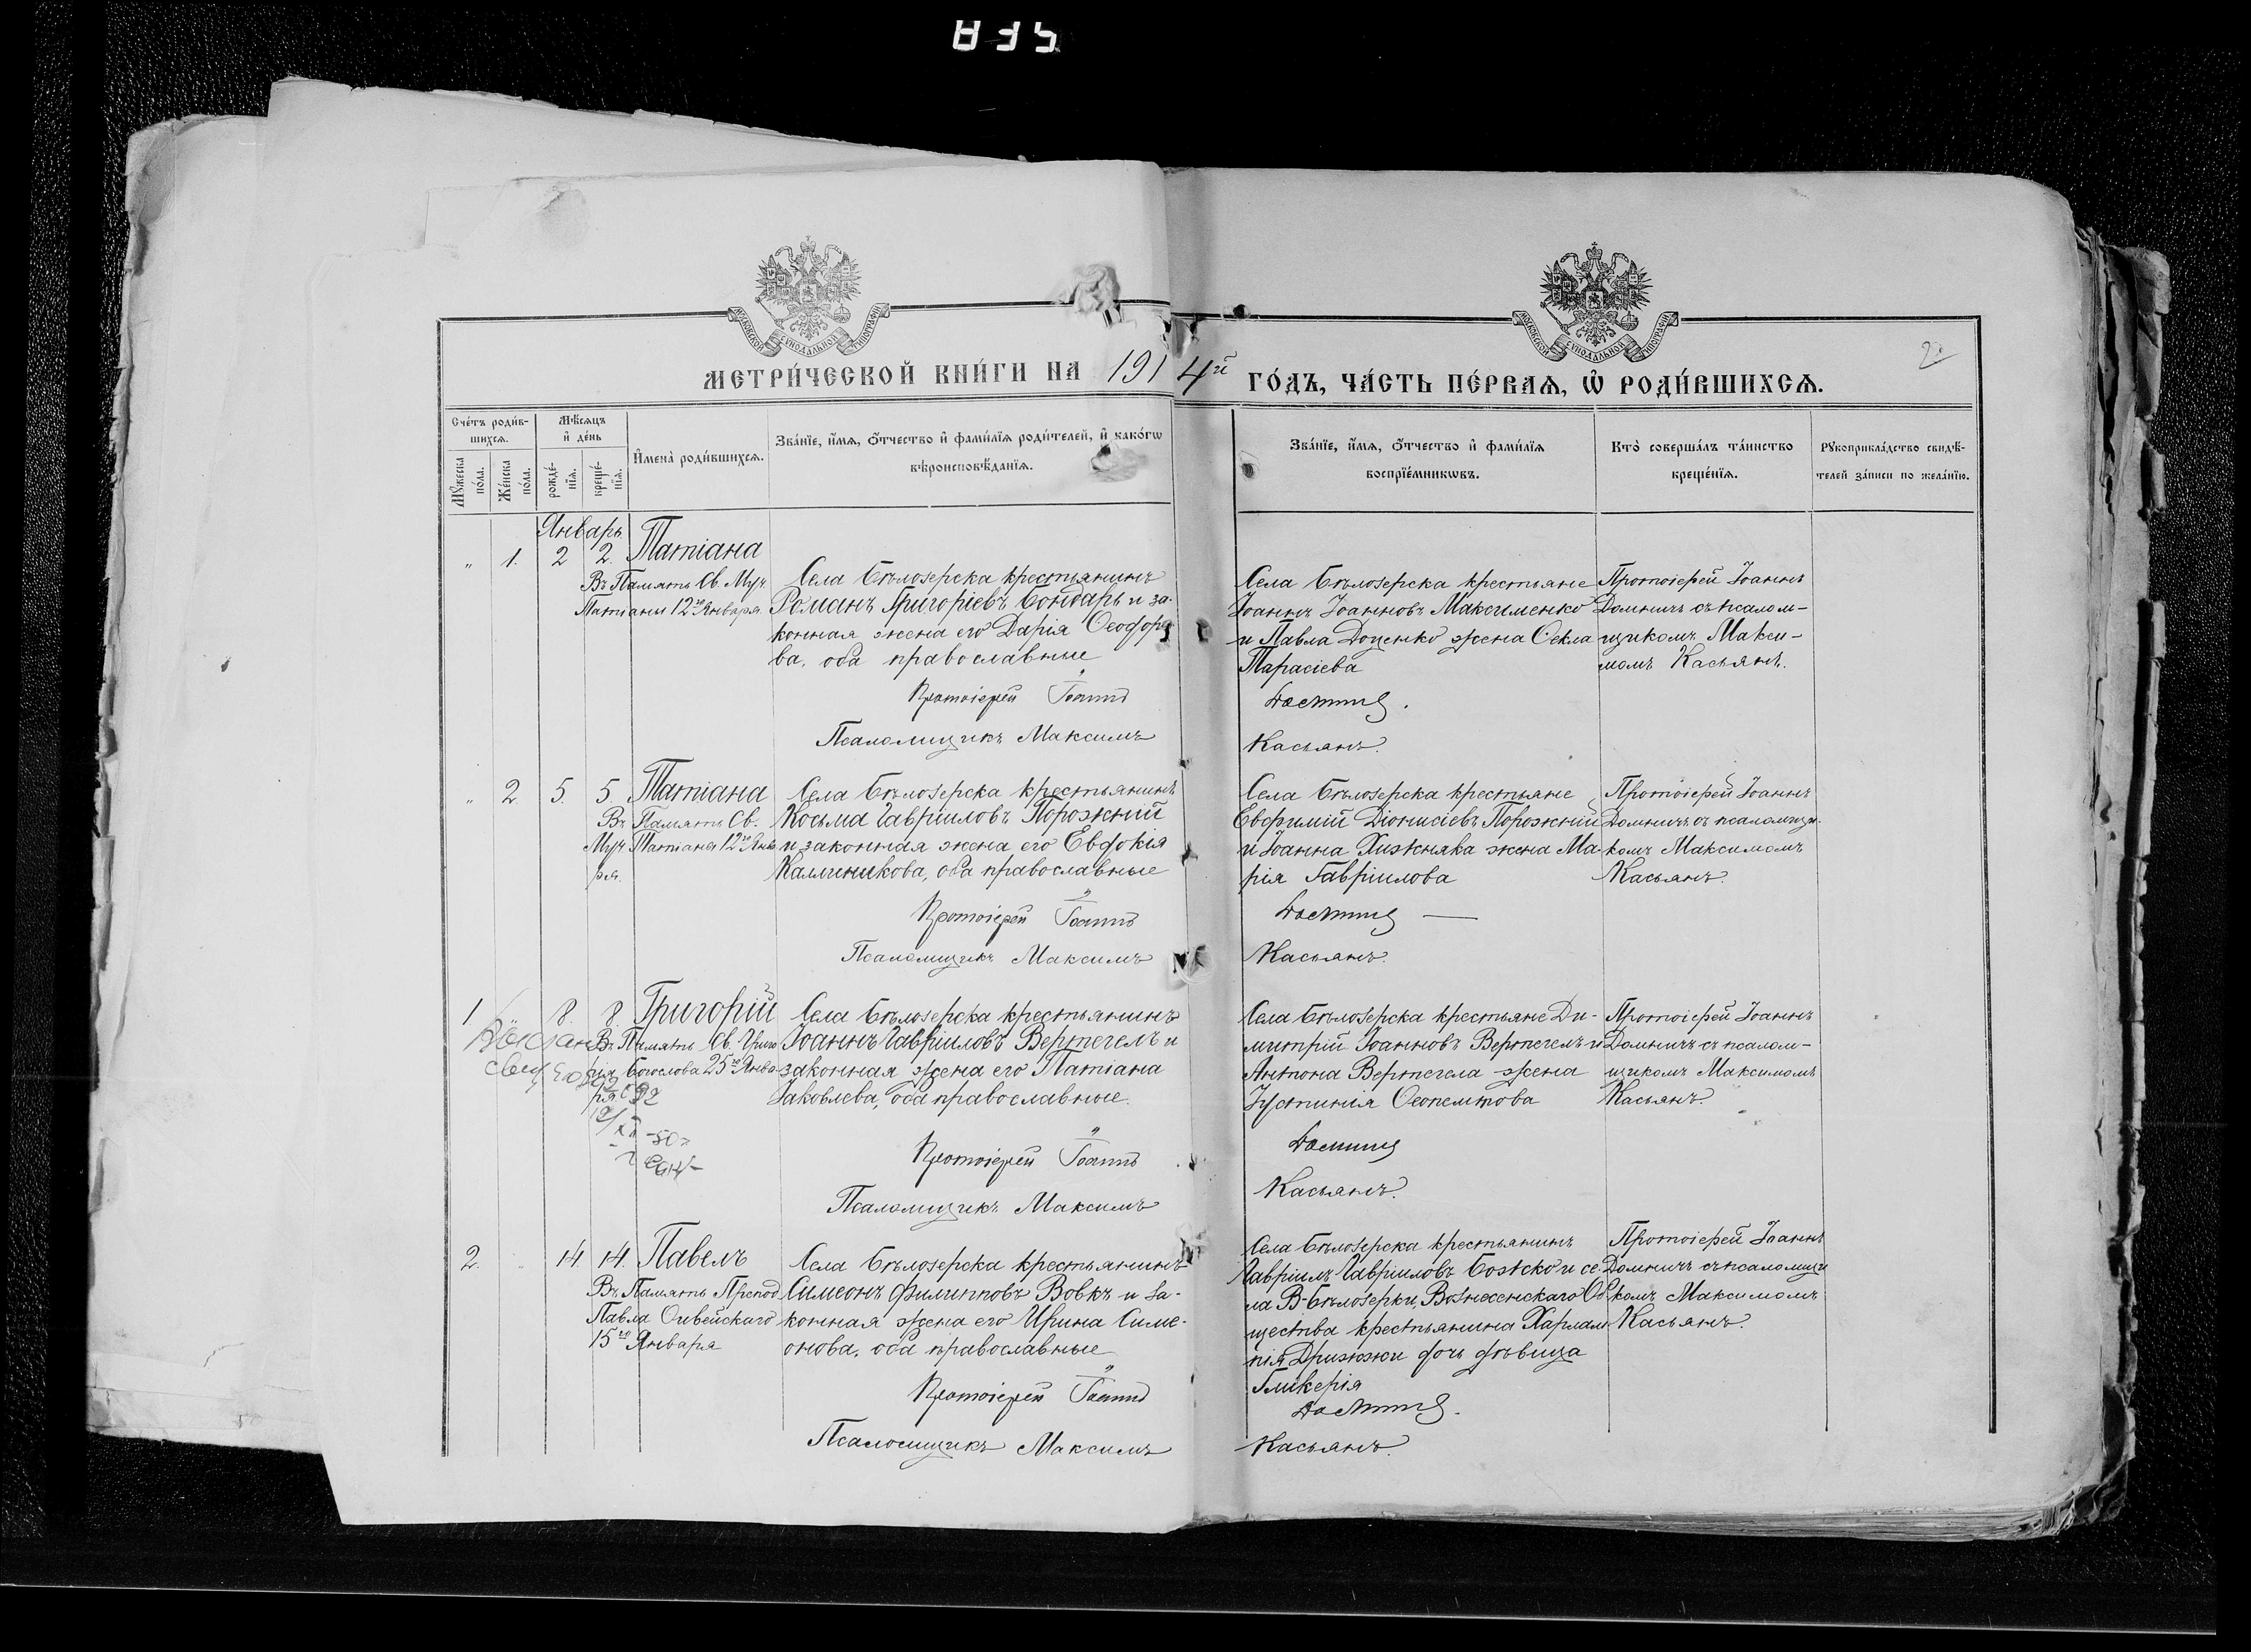 МЕТРИ́ЧЕСКОЙ КНИ́ГИ НА 1914й ГО́ДЪ, ЧА́СТЬ ПЕ́РВАѦ, Ѡ҆ РОДИ́ВШИХСѦ.
2
Сче́тъ роди́вшихсѧ.
Мꙋ́жеска по́ла.
Же́нска по́ла.
Мѣ́сѧцъ и҆ де́нь
рожде́нїѧ.
креще́нїѧ.
И҆мена̀ роди́вшихсѧ.
Зва́нїе, и҆́мѧ, ѻ҆́тчество и҆ фами́лїѧ роди́телей, и҆ како́гѡ
вѣроисповѣ́данїѧ.
Зва́нїе, и҆́мѧ, ѻ҆́тчество и҆ фами́лїѧ
воспрїе́мникѡвъ.
Кто̀ соверша́лъ та́инство
креще́нїѧ.
Рꙋкоприкла́дство свидѣ́-
телей за́писи по жела́нїю.
Январь
" 1. 2 2. Татіана
Въ Память Св. Муч.
Татіаны 12го Января.
Села Бѣлозерска крестьянинъ
Романъ Григоріевъ Бондарь и за-
конная жена его Дарія Ѳеодоро
ва, оба православные
Протоіерей Іоаннъ
Псаломщикъ Максимъ
Села Бѣлозерска крестьяне
Іоаннъ Іоанновъ Максименко
и Павла Доценко жена Ѳекла
Тарасіева
Домничъ.
Касьянъ.
Протоіерей Іоаннъ
Домничъ съ псалом-
щикомъ Макси-
момъ Касьянъ.
" 2. 5. 5. Татіана
Въ Память Св.
Муч. Татіаны 12го Янва
ря.
Села Бѣлозерска крестьянинъ
Косьма Гавріиловъ Порожній
и законная жена его Евдокія
Каллиникова, оба православные
Протоіерей Іоаннъ
Псаломщикъ Максимъ
Села Бѣлозерска крестьяне
Евфимій Діонисіевъ Порожній
и Іоанна Хижняка жена Ма-
рія Гавріилова
Домничъ
Касьянъ.
Протоіерей Іоаннъ
Домничъ съ псаломщи-
комъ Максимомъ
Касьянъ.
1 8. 8. Григорій
Въ Память Св. Григо
рія Богослова 25го Янва-
ря
Села Бѣлозерска крестьянинъ
Іоаннъ Гавріиловъ Вертегелъ и
законная жена его Татіана
Іаковлева, оба православные.
Протоіерей Іоаннъ
Псаломщикъ Максимъ
Села Бѣлозерска крестьяне Ди-
митрій Іоанновъ Вертегелъ и
Антона Вертегела жена
Іустинія Ѳеопемптова
Домничъ
Касьянъ.
Протоіерей Іоаннъ
Домничъ съ псалом-
щикомъ Максимомъ
Касьянъ.
2. 14 14. Павелъ
Въ Память Препод
Павла Ѳивейскаго
15го Января
Села Бѣлозерска крестьянинъ
Симеонъ Филипповъ Вовкъ и за-
конная жена его Ирина Симе-
онова, оба православные
Протоіерей Іоаннъ
Псаломщикъ Максимъ
Села Бѣлозерска крестьянинъ
Гавріилъ Гавріиловъ Бозско и се-
ла В-Бѣлозерки, Вознесенскаго Об
щества крестьянина Харлам
пія Дрижжи дочь дѣвица
Гликерія
Домничъ.
Касьянъ.
Протоіерей Іоаннъ
Домничъ съ псаломщи
комъ Максимомъ
Касьянъ.